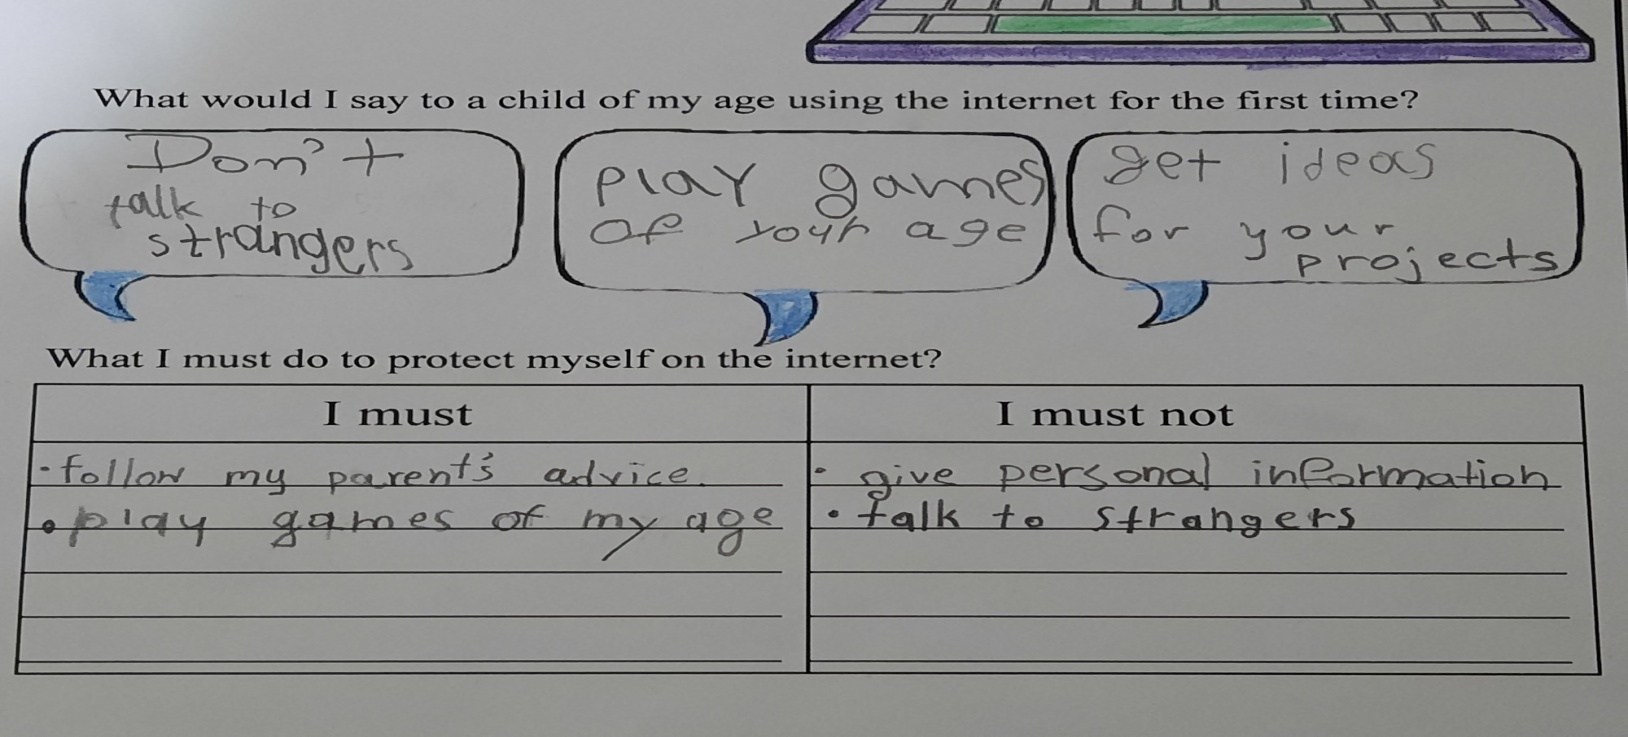 What would I say to a child of my age using the internet for the first time?
Don't
talk to
strangers
play games
of your age
get ideas
for your
projects
What I must do to protect myself on the internet?
I must
I must not
· follow my parent's advice.
· give personal information
· play games of my age
· talk to strangers